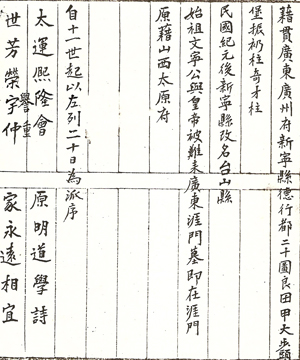 籍貫廣東廣州府新寧縣德行都二十圖良田甲大步頭
堡振初柱奇才柱
民國紀元後新寧縣改名台山縣
始祖文寧公與皇帝被難來廣東涯門墓即在涯門
原籍山西太原府
自十一世起以左列二十日為派序
太運熙隆會 原明道學詩
世芳榮宇仲 家永遠相宜
譽重